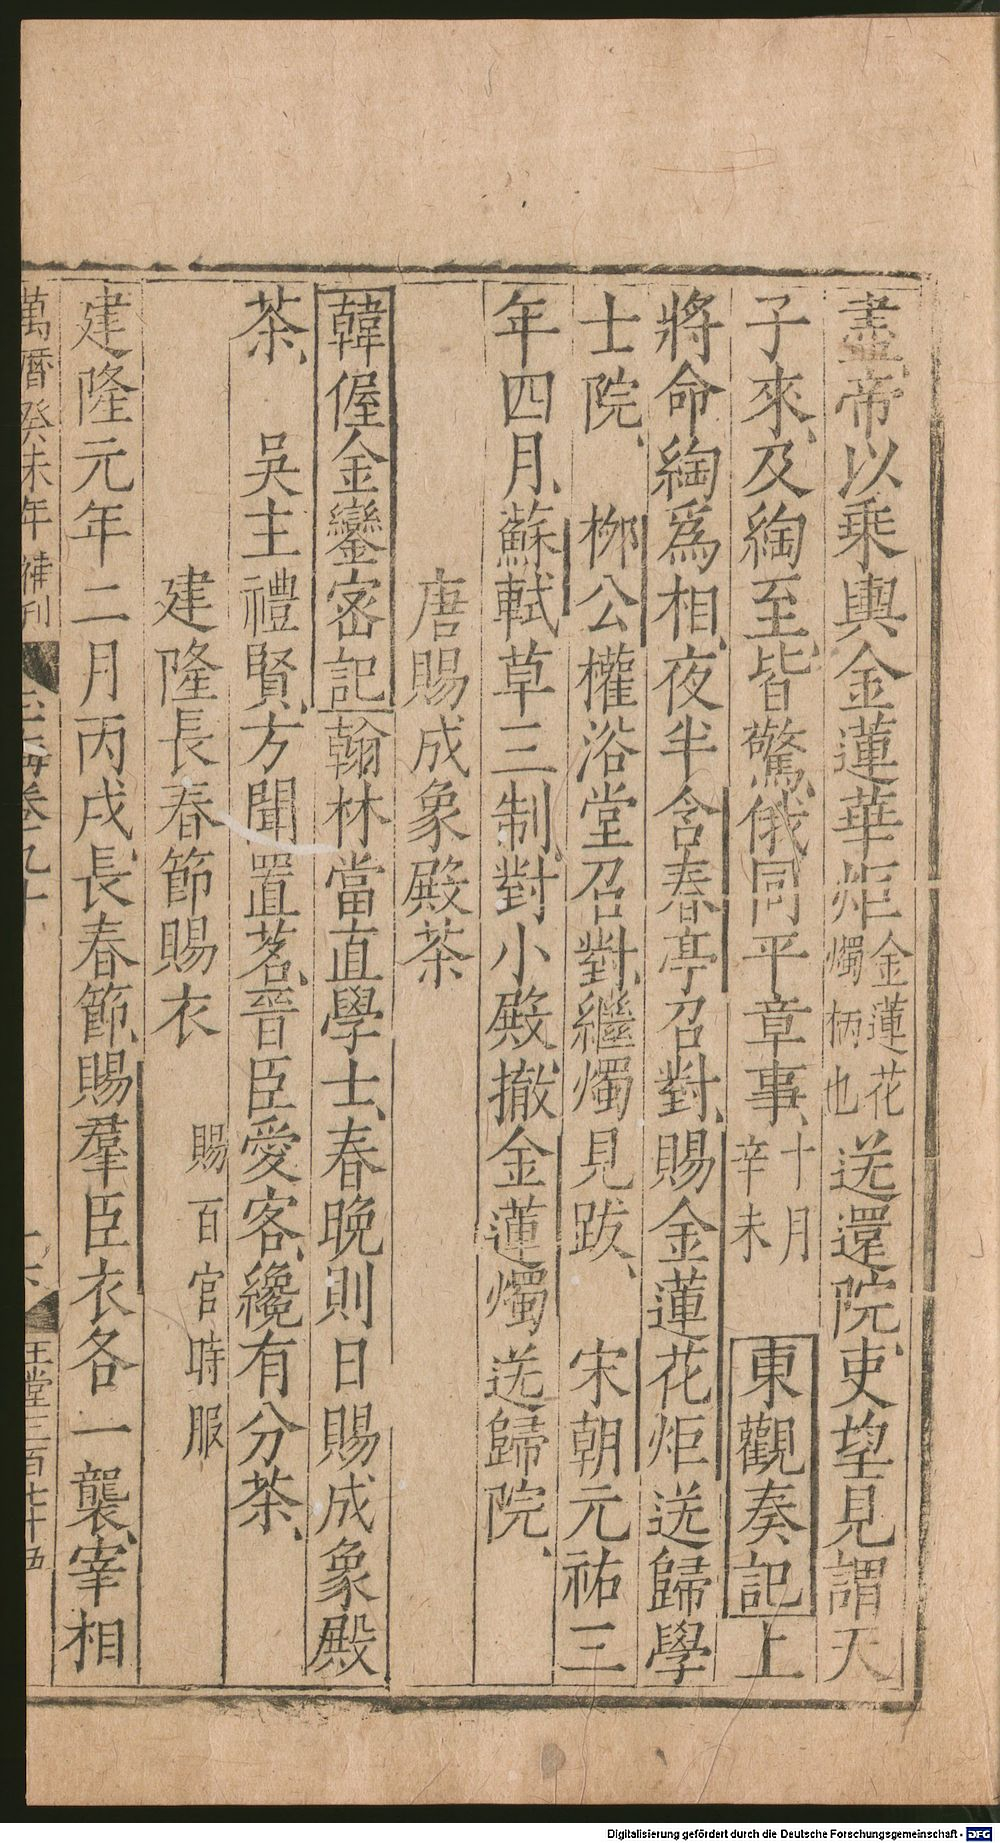 盡帝以乘輿金蓮華炬金蓮花燭柄也送還院吏望見謂天
子來及綯至皆驚俄同平章事十月辛未東觀奏記上
將命綯爲相夜半含春亭召對賜金蓮花炬送歸學
士院 柳公權浴堂召對繼燭見跋 宋朝元祐三
年四月蘇軾草三制對小殿撤金蓮燭送歸院
唐賜成象殿茶
韓偓金鑾密記翰林當直學士春晚則日賜成象殿
茶 吳主禮賢方聞置茗晉臣愛客纔有分茶
建隆長春節賜衣 賜百官時服
建隆元年二月丙戌長春節賜羣臣衣各一襲宰相
萬曆癸未年補刊 玉海卷九十 玉堂三百七十五
Digitalisierung gefördert durch die Deutsche Forschungsgemeinschaft - DFG